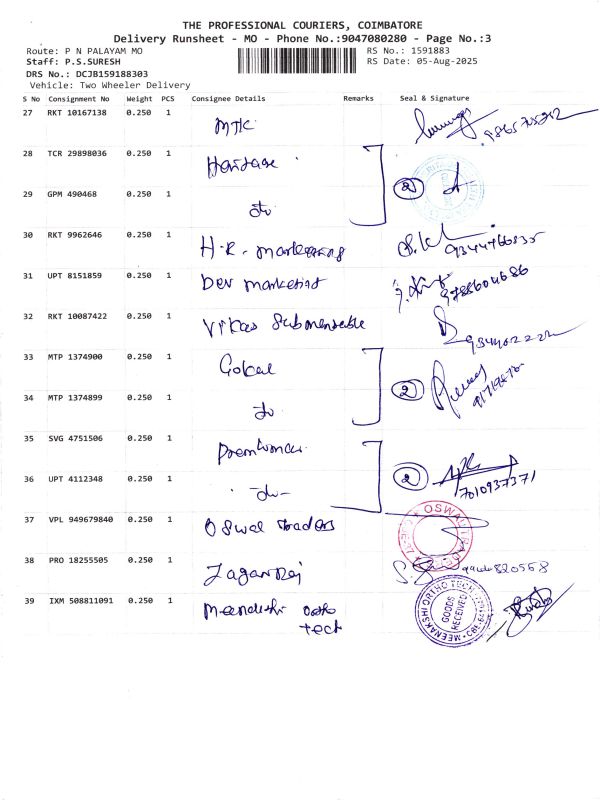 THE PROFESSIONAL COURIERS, COIMBATORE
Delivery Runsheet - MO - Phone No.:9047080280 - Page No.:3
Route: P N PALAYAM MO RS No.: 1591883
Staff: P.S.SURESH RS Date: 05-Aug-2025
DRS No.: DCJB159188303
Vehicle: Two Wheeler Delivery
S No Consignment No Weight PCS Consignee Details Remarks Seal & Signature
27 RKT 10167138 0.250 1 MTK
28 TCR 29898036 0.250 1
29 GPM 490468 0.250 1 do 2
30 RKT 9962646 0.250 1 H.R. marketing
31 UPT 8151859 0.250 1 Dev marketing 9788604686
32 RKT 10087422 0.250 1 Vikas Submersible
33 MTP 1374900 0.250 1 Gokul
34 MTP 1374899 0.250 1 do 2
35 SVG 4751506 0.250 1
36 UPT 4112348 0.250 1 -do- 2 7010937371
37 VPL 949679840 0.250 1 Oswal traders OSWAL TRADERS
38 PRO 18255505 0.250 1 Jaganraj
39 IXM 508811091 0.250 1 Meenakshi Ortho MEENAKSHI ORTHO TECH GOODS RECEIVED
tech